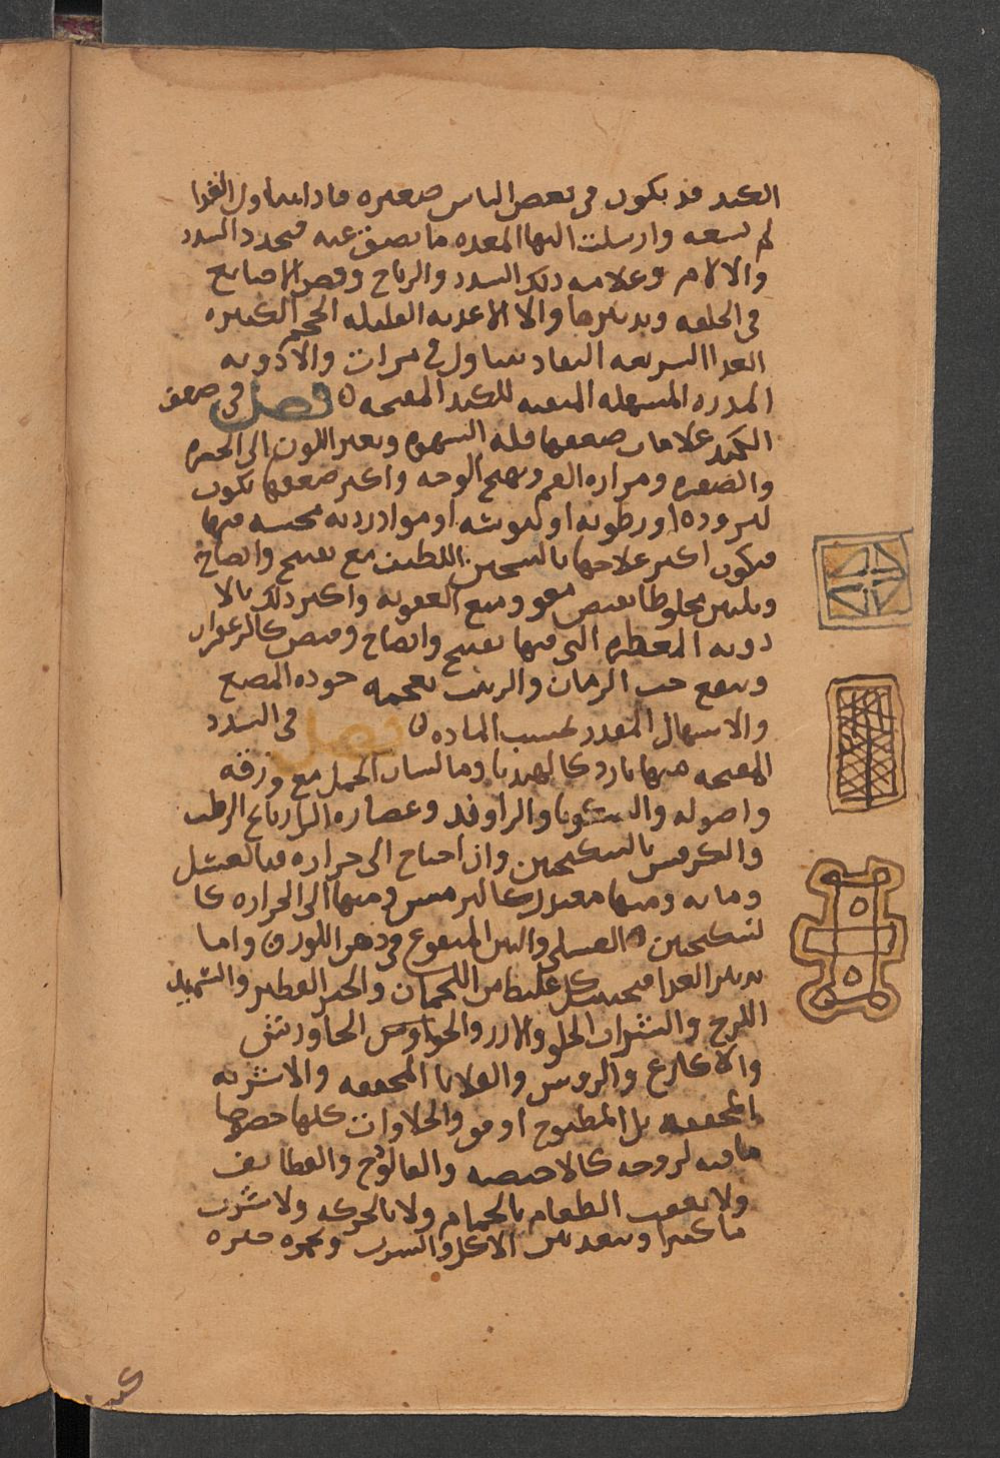 الكبد قد يكون في بعض الناس صغيره فاذا تناول الغذا
لم تسعه وارسلت اليها المعده ما تضيق عنه فتحدد السدد
والالام وعلامه ذلك السدد والرياح وقصر الاصابع
في الخلقه وتدبيرها والا الاغديه القليله الحجم الكثيره
الغدا السريعه النفاد تتناول في مرات والادويه
المدره المسهله المنقيه للكبد المفتحه فصل في ضعف
الكبد علامات ضعفها قله الشهوه وتغير اللون الى الحمره
والصفره ومراره الفم وتهيج الوجه واكثر ضعفها يكون
لبروده او رطوبه او يبوسه او مواد رديه محتبسه فيها
فيكون اكثر علاجها بالتسخين اللطيف مع تفتيح وانضاج
وتليين مخلوطا بقبض مقو ومنع العفونه واكثر ذلك بالا
دويه العطره التي فيها تفتيح وانضاج وقبض كالزعفران
وينفع حب الرمان والزبيب بعجمه جوده المضغ
والاسهال المقدر بحسب الماده فصل في السدد
المفتحه منها بارد كالهندبا وما لسان الحمل مع ورقه
واصوله والراوند وعصاره الرطب
والكرفس بالسكنجبين وان احتاج الى حراره فبالعسل
ومايه ومنها معتدل كالترمس ومنها الى الحراره كا
لسكنجبين العسلي والتين المنقوع في دهن اللوز واما
تدبير الغدا فيجتنب كل غليظ من اللحمان والخبز الفطير والسميد
اللزج والشراب الحلو والارز والجاورس
والاكارع والروس والقلايا المجففه والاشربه
المجففه بل المطبوخ او والحلاوات كلها خصوصا
ما فيه لزوجه كالاخبصه والفالوذج والقطايف
ولا يعقب الطعام بالحمام ولا بالحركه ولا شرب
ما كثيرا ويبعد بين الاكل والشرب